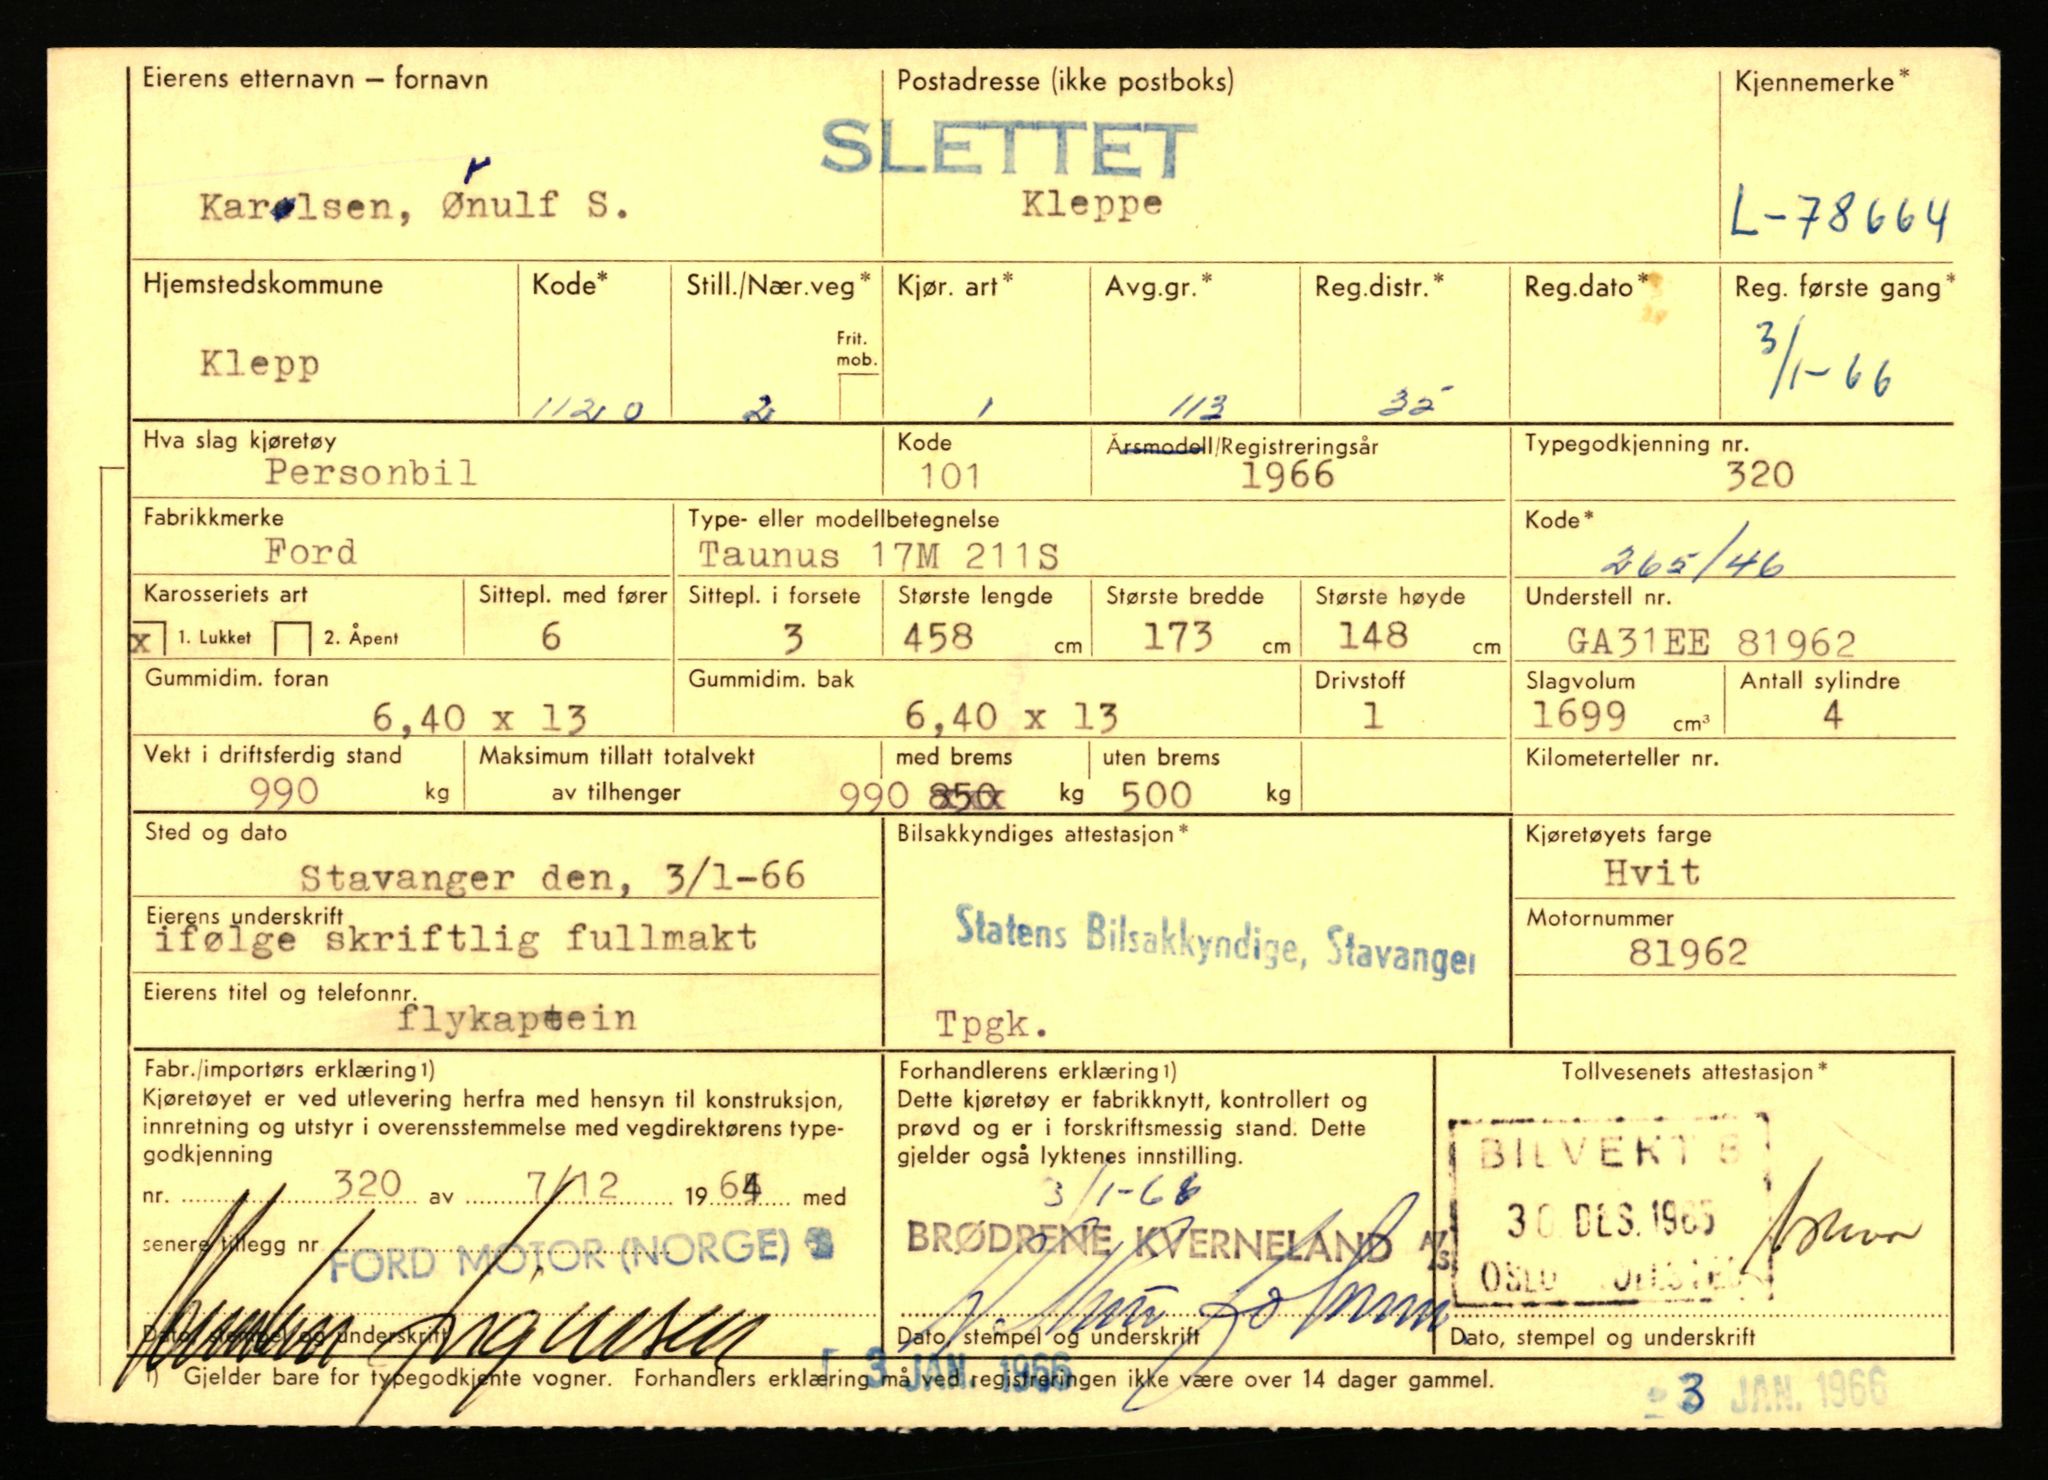 Eierens etternavn – fornavn
Postadresse (ikke postboks)
Kjennemerke*
SLETTET
r
Karolsen, Ønulf S.
Kleppe
L-78664
Hjemstedskommune
Kode*
Still./Nær.veg*
Kjør. art*
Avg.gr.*
Reg.distr.*
Reg.dato*
Reg. første gang*
Frit. mob.
Klepp
1120
2
1
113
35
3/1-66
Hva slag kjøretøy
Kode
Årsmodell/Registreringsår
Typegodkjenning nr.
Personbil
101
1966
320
Fabrikkmerke
Type- eller modellbetegnelse
Kode*
Ford
Taunus 17M 211S
265/46
Karosseriets art
Sittepl. med fører
Sittepl. i forsete
Største lengde
Største bredde
Største høyde
Understell nr.
x 1. Lukket 2. Åpent
6
3
458 cm
173 cm
148 cm
GA31EE 81962
Gummidim. foran
Gummidim. bak
Drivstoff
Slagvolum
Antall sylindre
6,40 x 13
6,40 x 13
1
1699 cm³
4
Vekt i driftsferdig stand
Maksimum tillatt totalvekt
med brems
uten brems
Kilometerteller nr.
990 kg
av tilhenger
990 850 kg
500 kg
Sted og dato
Bilsakkyndiges attestasjon*
Kjøretøyets farge
Stavanger den, 3/1-66
Hvit
Eierens underskrift
Motornummer
ifølge skriftlig fullmakt
Statens Bilsakkyndige, Stavanger
81962
Eierens titel og telefonnr.
flykaptein
Tpgk.
Fabr./importørs erklæring1)
Kjøretøyet er ved utlevering herfra med hensyn til konstruksjon,
innretning og utstyr i overensstemmelse med vegdirektørens type-
godkjenning
nr. 320 av 7/12 1964 med
senere tillegg nr
FORD MOTOR (NORGE)
Dato, stempel og underskrift
Forhandlerens erklæring1)
Dette kjøretøy er fabrikknytt, kontrollert og
prøvd og er i forskriftsmessig stand. Dette
gjelder også lyktenes innstilling.
3/1-66
BRØDRENE KVERNELAND A/S
Dato, stempel og underskrift
Tollvesenets attestasjon*
BILVERK
30 DES. 1965
OSLO
Dato, stempel og underskrift
1) Gjelder bare for typegodkjente vogner. Forhandlers erklæring må ved registreringen ikke være over 14 dager gammel.
3 JAN. 1966
3 JAN. 1966